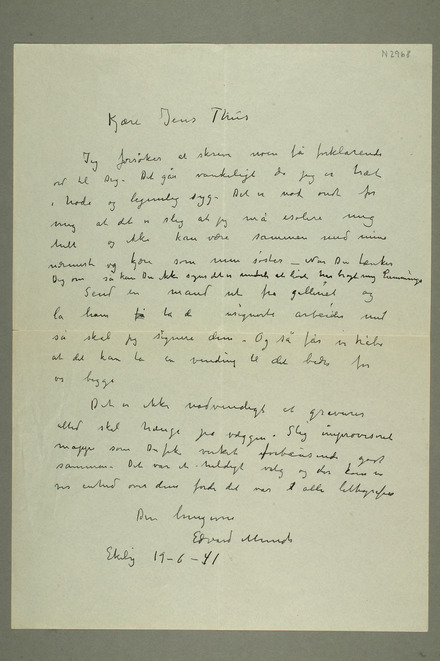 N 2968
Kjære Jens Thiis
Jeg forsøker at skrive noen få forklarende
ord til Dig. Det går vanskeligt da jeg er træt
i hode og legemlig syg. Det er nok ondt for
mig at det er slig at jeg må isolere mig
helt og ikke kan være sammen med mine
nærmeste og kjære som min søster — Når Du tænker
Dig om så kan Du ikke synes det er
Send en mand ut fra galleriet og
la ham få ta de usignerte arbeider med
så skal jeg signere dem. Og så får vi håbe
at det kan ta en vending til det bedre for
os begge
Det er ikke nødvendigt at gravurer
altid skal hænge på væggen. Slig improviseret
mappe som Du fik virket forbausende godt
sammen. Det var et heldigt valg og der kom en
vis enhed over dem fordi det var alle lithografier
Din hengivne
Edvard Munch
Ekely 19-6-41